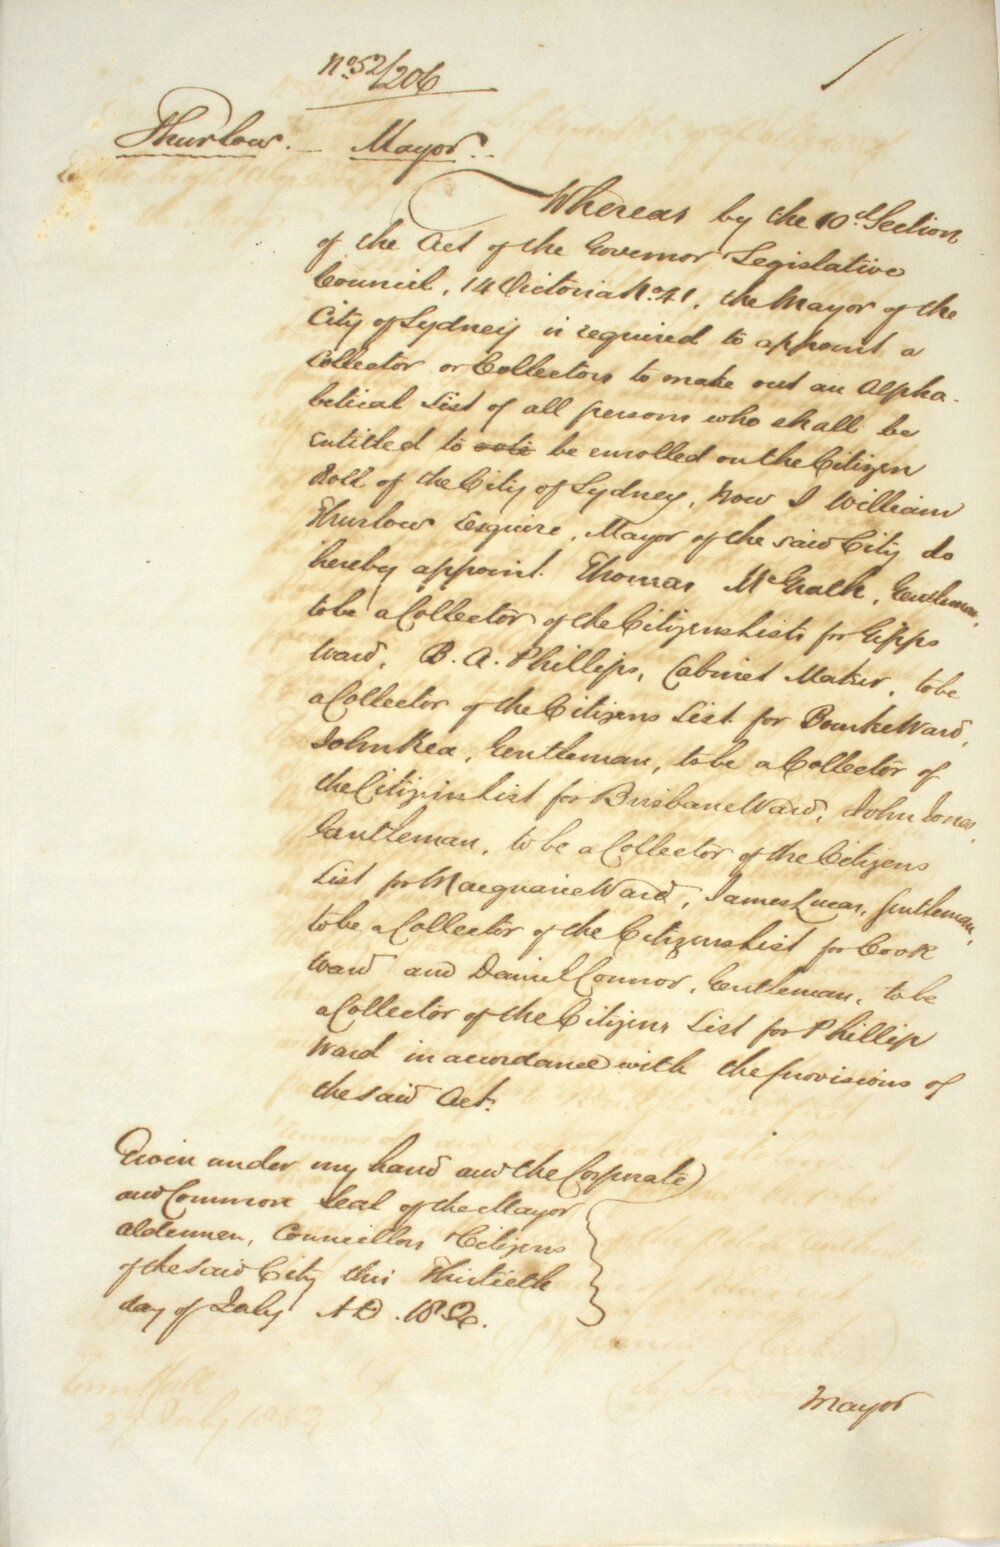 No. 52/206
Thurlow. – Mayor.
Whereas by the 10th Section
of the Act of the Governor Legislative
Council, 14 Victoria No. 41, the Mayor of the
City of Sydney is required to appoint a
Collector or Collectors to make out an Alpha-
betical List of all persons who shall be
entitled to vote be enrolled on the Citizen
Roll of the City of Sydney, Now I William
Thurlow Esquire, Mayor of the said City do
hereby appoint Thomas McGrath, Gentleman,
to be a Collector of the Citizens Lists for Gipps
Ward, B. A. Phillips, Cabinet Maker, to be
a Collector of the Citizens List for Bourke Ward,
John Rea, Gentleman, to be a Collector of
the Citizens List for Brisbane Ward, John Jones,
Gentleman, to be a Collector of the Citizens
List for Macquarie Ward, James Lucas, Gentleman,
to be a Collector of the Citizens List for Cook
Ward and Daniel Connor, Gentleman, to be
a Collector of the Citizens List for Phillip
Ward in accordance with the provisions of
the said Act.
Given under my hand and the Corporate
and Common Seal of the Mayor
Aldermen, Councillors Citizens
of the said City this Thirtieth
day of July A.D. 1852.
Mayor
Town Hall
27 July 1852